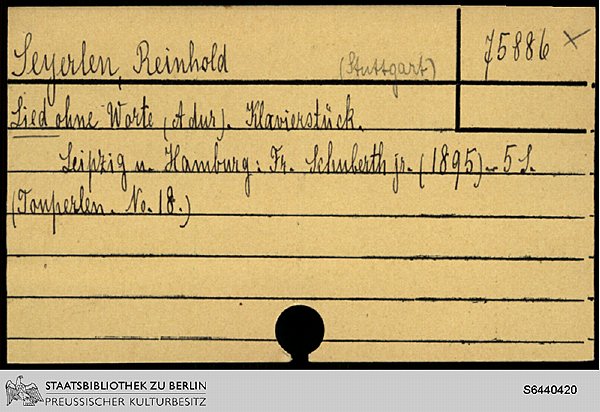 Seyerlen, Reinhold (Stuttgart) 75886 x
Lied ohne Worte (A dur). Klavierstück.
Leipzig u. Hamburg: Fr. Schuberth jr. (1895) - 5 S.
(Tonperlen. No. 18.)
STAATSBIBLIOTHEK ZU BERLIN
PREUSSISCHER KULTURBESITZ
S6440420